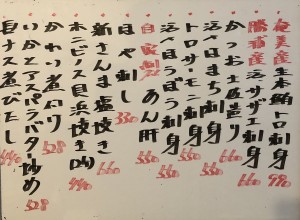 奄美産生本鮪トロ刺身 990
勝浦産活サザエ刺身 660
かつお土佐造り 660
活〆はまち刺身 550
トロサーモン刺身 550
活〆ほうぼう刺身 550
自家製あん肝 550
ほや刺し 330
新さんま塩焼き 660
ホンビノス貝浜焼き(2ヶ) 660
かれい煮付け 528
いかとアスパラバター炒め 528
白ナス煮びたし 440